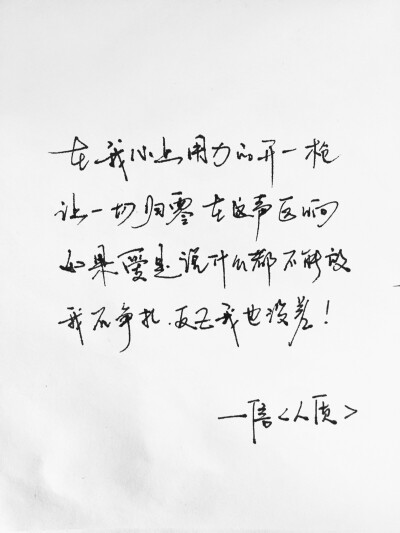 在我心上用力的开一枪
让一切归零在这声巨响
如果愛是说什么都不能放
我不争扎.反正我也没差!
—<人质>